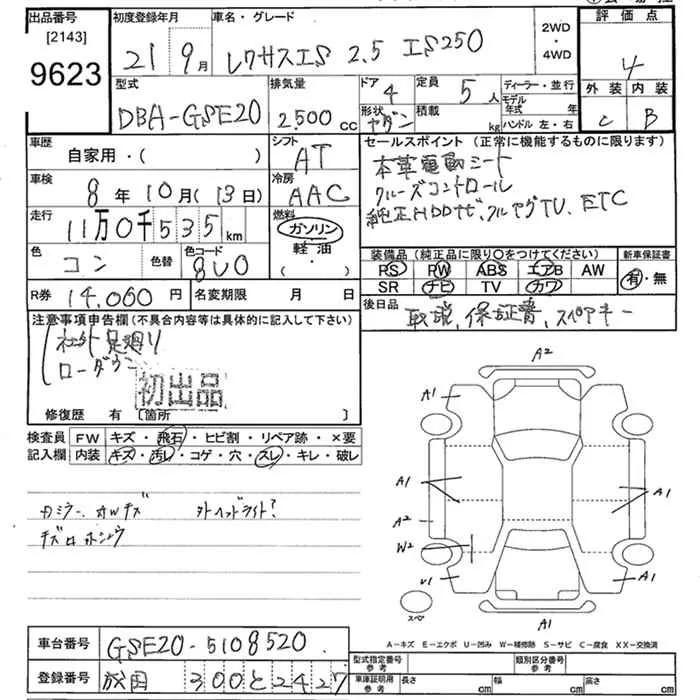 出品番号
[2143]
9623
初度登録年月
21 9月
車名・グレード
レクサスIS 2.5 IS250
2WD
・
4WD
評価点
4
外装 内装
C B
型式
DBA-GSE20
排気量
2.500cc
ドア
4
定員
5人
形状
セダン
積載
kg
ディーラー・並行
モデル
年式 年
ハンドル 左・右
車歴
自家用・( )
シフト
AT
車検
8年10月(13日)
冷房
AAC
走行
11万0千535km
燃料
ガソリン
・
軽油
色
コン
色替
色コード
8U0
R券 14.060円
名変期限 月 日
セールスポイント(正常に機能するものに限ります)
本革電動シート
クルーズコントロール
純正HDDナビ、フルセグTV、ETC
装備品(純正品に限り○をつけてください)
新車保証書
PS PW ABS エアB AW
SR ナビ TV カワ
有・無
後日品
取説、保証書、スペアキー
注意事項申告欄(不具合内容等は具体的に記入して下さい)
社外足廻り
ローダウン
初出品
修復歴 有 〔箇所 〕
検査員
記入欄
FW キズ・飛石・ヒビ割・リペア跡・×要
内装 キズ・汚レ・コゲ・穴・スレ・キレ・破レ
カミラー
キズ
ヘッドライト?
A2
A1
A1
A1
A2
A1
W2
U1
A1
A1
スペア
A-キズ E-エクボ U-凹み W-補修跡 S-サビ C-腐食 XX-交換済
車台番号 GSE20-5108520
登録番号 300 と 2427
型式指定番号
参考
類別区分番号
参考
車庫証明用
参考
長さ cm 幅 cm 高さ cm